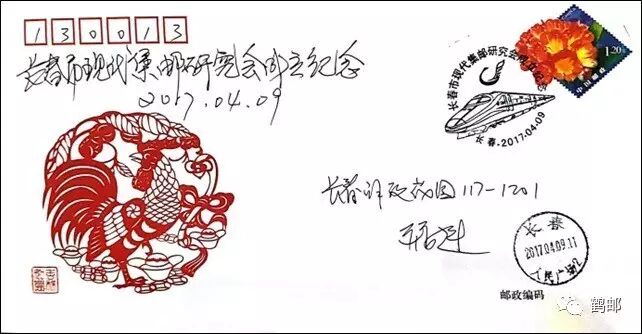 130013
长春市现代集邮研究会成立纪念
2017.04.09
1.20
中国邮政
长春市现代集邮研究会成立纪念
长春·2017.04.09
长春
117-1201
长春
2017.04.09.11
人民广场
邮政编码
鹤邮